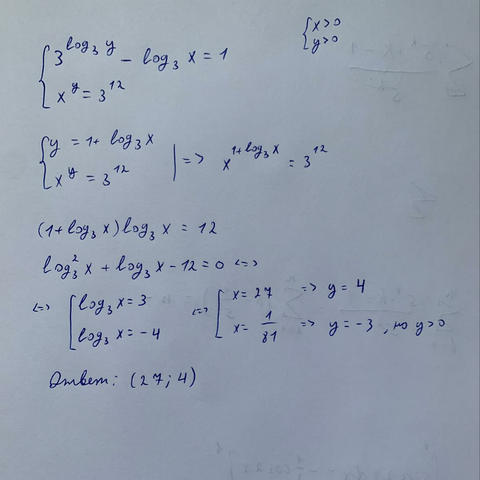 { 3^{log_3 y} - log_3 x = 1
{ x^y = 3^{12}
{ x>0
{ y>0
{ y = 1 + log_3 x
{ x^y = 3^{12} | => x^{1+log_3 x} = 3^{12}
(1+log_3 x) log_3 x = 12
log_3^2 x + log_3 x - 12 = 0 <=>
<=> [ log_3 x = 3 <=> [ x = 27 => y = 4
[ log_3 x = -4 [ x = 1/81 => y = -3, но y>0
Ответ: (27; 4)